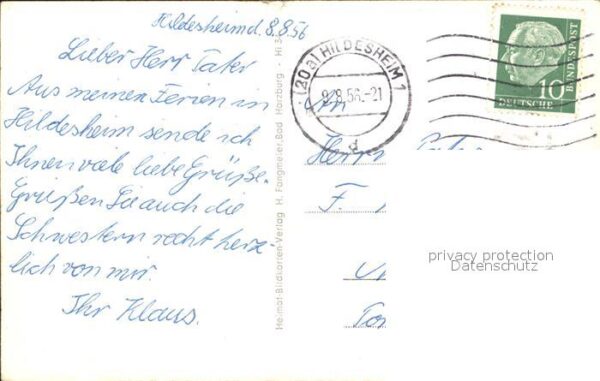 Hildesheim d. 8.8.56
Lieber Herr Pater
Aus meinen Ferien in
Hildesheim sende ich
Ihnen viele liebe Grüße.
Grüßen Sie auch die
Schwestern recht herz-
lich von mir.
Ihr Klaus.
Heimat-Bildkarten-Verlag H. Fangmeier, Bad Harzburg
(20a) HILDESHEIM 1
9.8.56.-21
d
10
DEUTSCHE
BUNDESPOST
An
Herrn
F.
privacy protection
Datenschutz